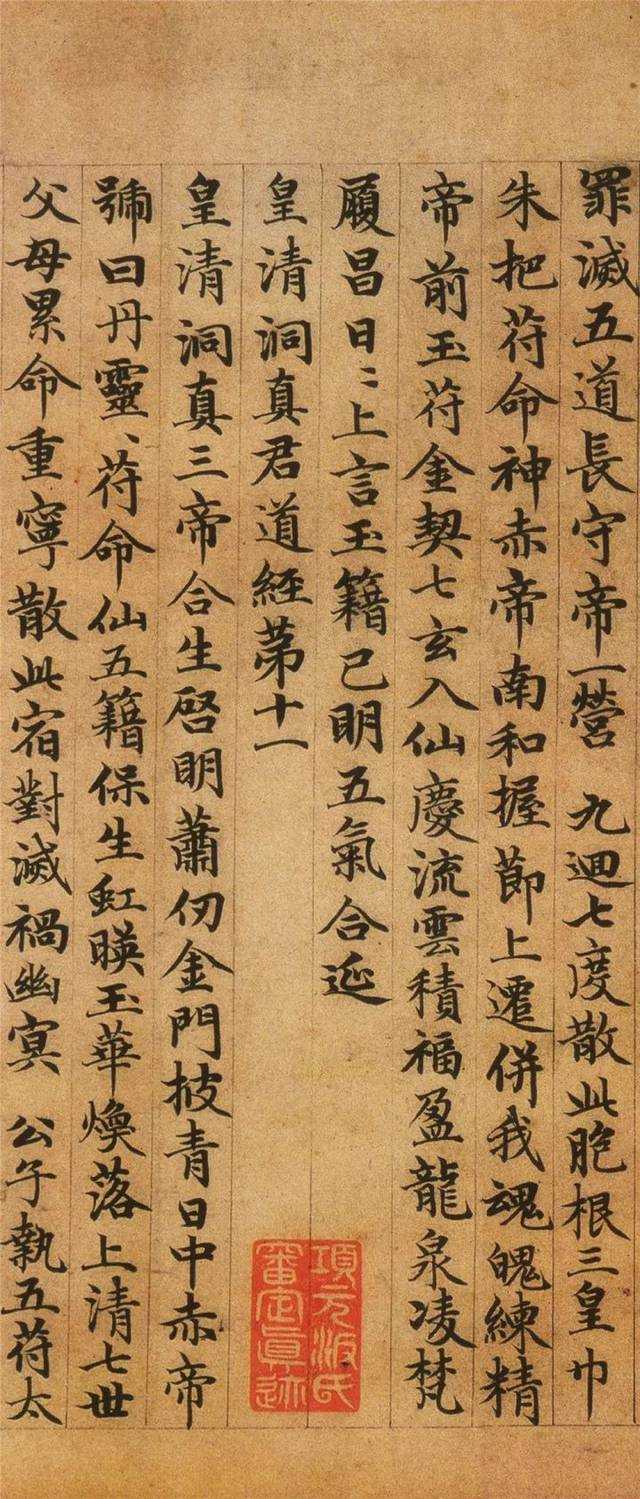 罪滅五道長守帝一營 九迴七度散此胞根三皇巾
朱把苻命神赤帝南和握莭上遷併我魂魄練精
帝前玉苻金契七玄入仙慶流雲積福盈龍泉凌梵
履昌日〻上言玉籍已明五氣合延
皇清洞真君道經苐十一
皇清洞真三帝合生啓明蕭仞金門披青日中赤帝
號曰丹靈〻苻命仙五籍保生虹暎玉華煥落上清七世
父母累命重寧散此宿對滅禍幽冥 公子執五苻太
項元汴氏
審定真迹